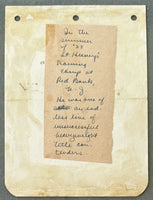 In the
summer
of '35
at Henry's
training
camp at
Red Bank,
N-J
He was one of
an end-
less line of
unsuccessful
heavyweight
title con-
tenders